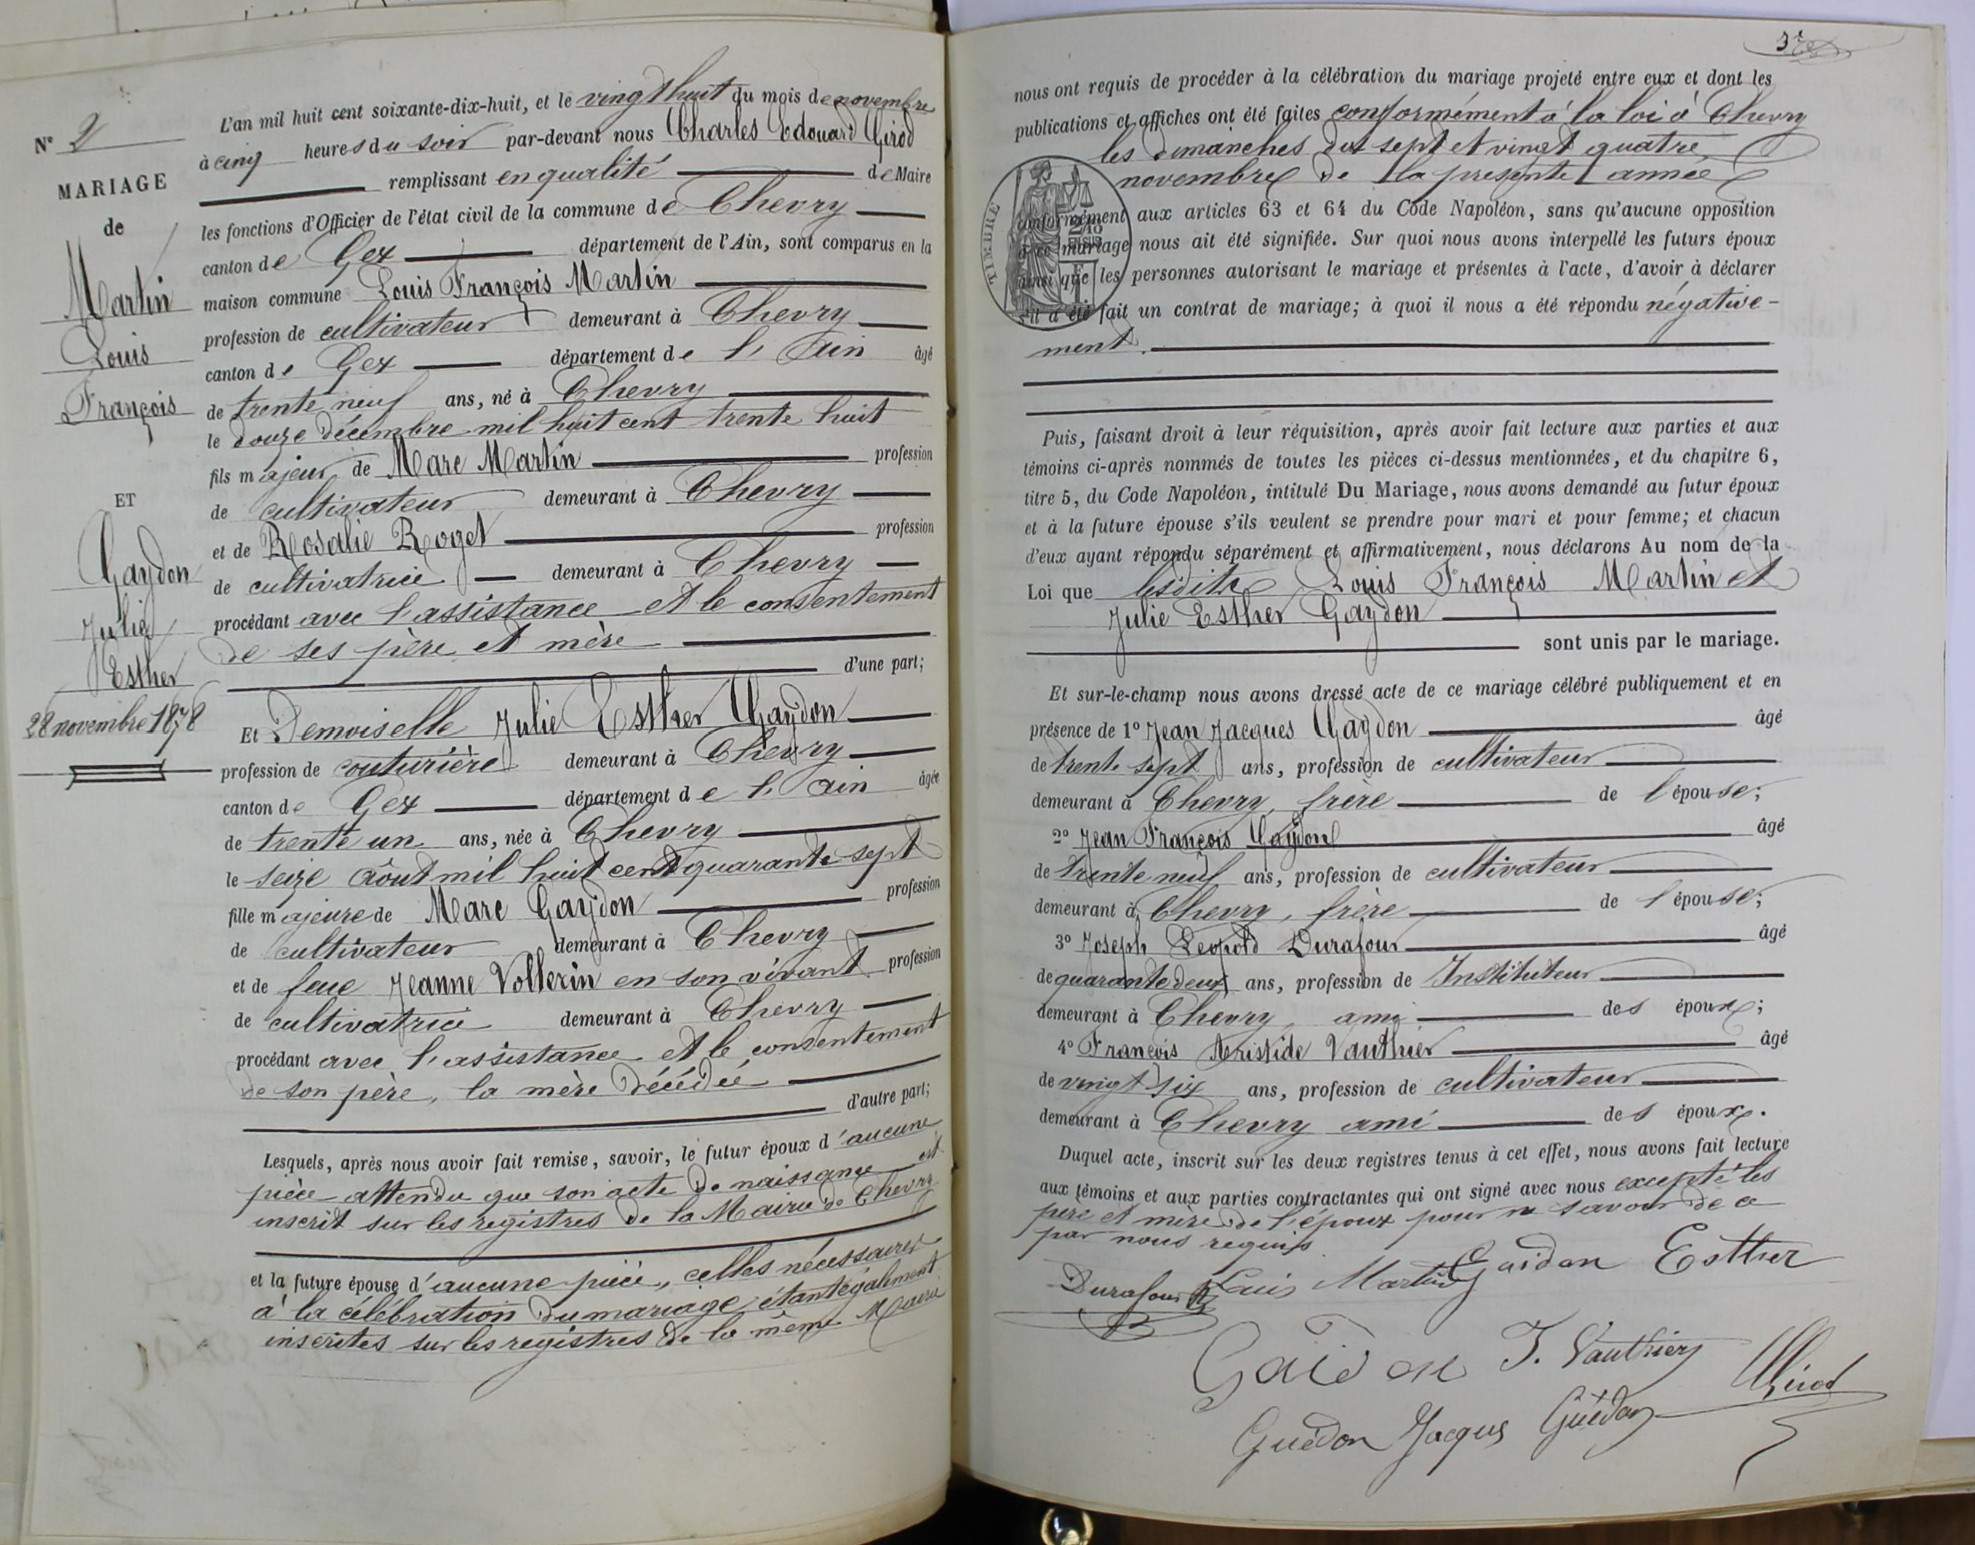 N° 2
MARIAGE
de
Martin
Louis
François
ET
Gaydon
Julie
Esther
28 novembre 1878
L'an mil huit cent soixante-dix-huit, et le vingt huit du mois de novembre
à cinq heures du soir par-devant nous Charles Edouard Girod
remplissant en qualité de Maire
les fonctions d'Officier de l'état civil de la commune de Chevry
canton de Gex département de l'Ain, sont comparus en la
maison commune Louis François Martin
profession de cultivateur demeurant à Chevry
canton de Gex département de l'Ain âgé
de trente neuf ans, né à Chevry
le douze décembre mil huit cent trente huit
fils majeur de Marc Martin profession
de cultivateur demeurant à Chevry
et de Rosalie Roget profession
de cultivatrice demeurant à Chevry
procédant avec l'assistance et le consentement
de ses père et mère
d'une part;
Et Demoiselle Julie Esther Gaydon
profession de couturière demeurant à Chevry
canton de Gex département de l'Ain âgée
de trente un ans, née à Chevry
le seize Août mil huit cent quarante sept
fille majeure de Marc Gaydon profession
de cultivateur demeurant à Chevry
et de feue Jeanne Vollerin en son vivant profession
de cultivatrice demeurant à Chevry
procédant avec l'assistance et le consentement
de son père, la mère décédée
d'autre part;
Lesquels, après nous avoir fait remise, savoir, le futur époux d'aucune
pièce attendu que son acte de naissance est
inscrit sur les registres de la Mairie de Chevry
et la future épouse d'aucune pièce, celles nécessaires
à la célébration du mariage étant également
inscrites sur les registres de la même Mairie
nous ont requis de procéder à la célébration du mariage projeté entre eux et dont les
publications et affiches ont été faites conformément à la loi à Chevry
les dimanches dix sept et vingt quatre
novembre de la présente année
TIMBRE
conformément aux articles 63 et 64 du Code Napoléon, sans qu'aucune opposition
à ce mariage nous ait été signifiée. Sur quoi nous avons interpellé les futurs époux
ainsi que les personnes autorisant le mariage et présentes à l'acte, d'avoir à déclarer
s'il a été fait un contrat de mariage; à quoi il nous a été répondu négative-
ment.
Puis, faisant droit à leur réquisition, après avoir fait lecture aux parties et aux
témoins ci-après nommés de toutes les pièces ci-dessus mentionnées, et du chapitre 6,
titre 5, du Code Napoléon, intitulé Du Mariage, nous avons demandé au futur époux
et à la future épouse s'ils veulent se prendre pour mari et pour femme; et chacun
d'eux ayant répondu séparément et affirmativement, nous déclarons Au nom de la
Loi que lesdits Louis François Martin et
Julie Esther Gaydon
sont unis par le mariage.
Et sur-le-champ nous avons dressé acte de ce mariage célébré publiquement et en
présence de 1° Jean Jacques Gaydon âgé
de trente sept ans, profession de cultivateur
demeurant à Chevry, frère de l'épouse;
2° Jean François Gaydon âgé
de trente neuf ans, profession de cultivateur
demeurant à Chevry, frère de l'épouse;
3° Joseph Leopold Durafour âgé
de quarante deux ans, profession de Instituteur
demeurant à Chevry, ami des époux;
4° François Aristide Vauthier âgé
de vingt six ans, profession de cultivateur
demeurant à Chevry ami des époux.
Duquel acte, inscrit sur les deux registres tenus à cet effet, nous avons fait lecture
aux témoins et aux parties contractantes qui ont signé avec nous excepté les
père et mère de l'époux pour ne savoir de ce
par nous requis
Durafour Louis Martin Gaidon Esther
Gaidon F. Vauthier
Girod
Guédon Jacques Guédon